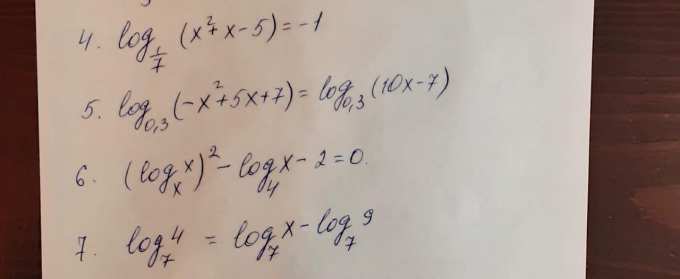 4. log_{1/7} (x²+x-5) = -1
5. log_{0,3} (-x²+5x+7) = log_{0,3} (10x-7)
6. (log_x x)² - log_4 x - 2 = 0.
7. log_7 4 = log_7 x - log_7 9